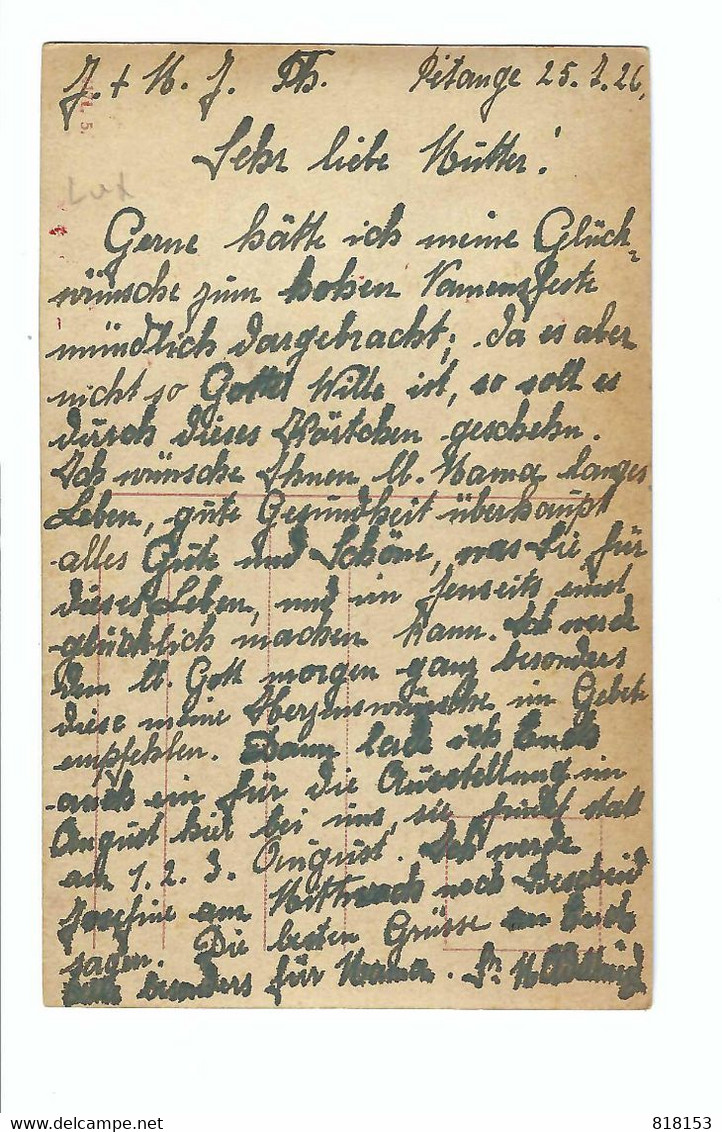 J. + M. J. Th. Pétange 25.7.26.
Sehr liebe Mutter!
Lux
Gerne hätte ich meine Glück-
wünsche zum hohen Namensfeste
mündlich dargebracht; da es aber
nicht so Gottes Wille ist, so soll es
durch dieses Wörtchen geschehn.
Ich wünsche Ihnen lb. Mama langes
Leben, gute Gesundheit überhaupt
alles Gute und Schöne, was Sie für
dieses Leben, und im Jenseits einst
glücklich machen kann. Ich werde
dem lb. Gott morgen ganz besonders
diese meine Herzenswünsche im Gebete
empfehlen. Dann lade ich Euch
auch ein für die Ausstellung im
August hier bei uns, sie findet statt
am 1. 2. 3. August. Ich werde
Josefine am Mittwoch noch Bescheid
sagen. Die besten Grüsse an Euch
besonders für Mama. Sr. M.
818153